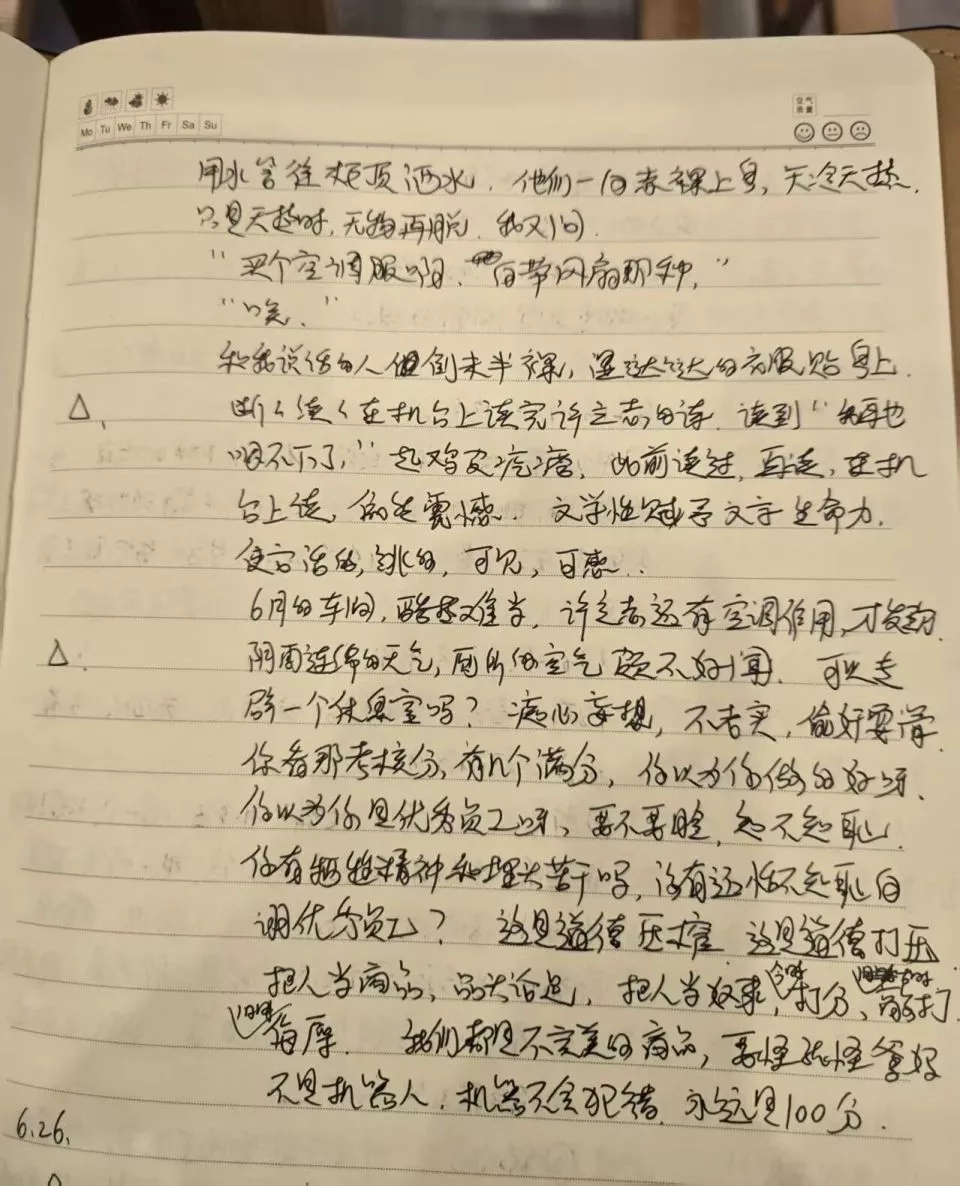 Mo Tu We Th Fr Sa Su
空气质量
用水管往柜顶洒水. 他们一向赤裸上身, 天冷天热.
只是天热时, 无物再脱. 我又问.
“买个空调服啊. 自带风扇那种.”
“唉.”
和我说话的人倒未半裸, 湿哒哒的衣服贴身上.
△. 断断续续在机台上读完许立志的诗. 读到“我再也
咽不下了”起鸡皮疙瘩. 此前读过, 再读, 在机
台上读, 仍生震感. 文学性赋予文字生命力.
使它活的, 跳的, 可见, 可感..
6月的车间, 酷热难当, 许立志还有空调作用, 才发
△. 阴雨连绵的天气, 厕所的空气 不好闻. 可以专
辟一个休息室吗? 痴心妄想, 不老实, 偷奸耍滑.
你看那考核分, 有几个满分, 你以为你做的好呀.
你以为你是优秀员工呀, 要不要脸, 知不知耻.
你有牺牲精神和埋头苦干吗, 没有还恬不知耻自
诩优秀员工? 这是道德压榨 这是道德打压
把人当商品, 品头论足, 把人当奴隶, 打分,
侮辱. 我们都是不完美的商品, 要怪就怪爹妈
不是机器人. 机器不会犯错. 永远是100分.
6.26.